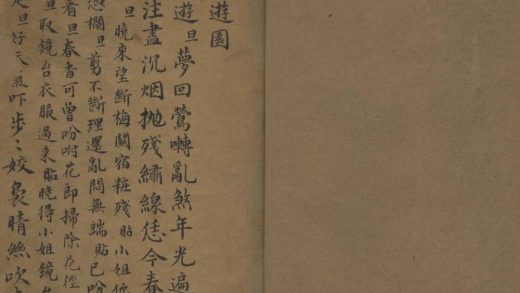 遊園
遊旦夢回鶯囀亂煞年光遍
注盡沉烟抛残繡線恁今春
旦曉來望斷梅關宿粧残貼小姐你
凭欄旦剪不斷理還亂悶無端貼已吩
着旦春香可曾吩咐花郎掃除花徑
旦取鏡台衣服過来貼晓得小姐鏡
旦好天氣吓步〻姣裊晴絲吹